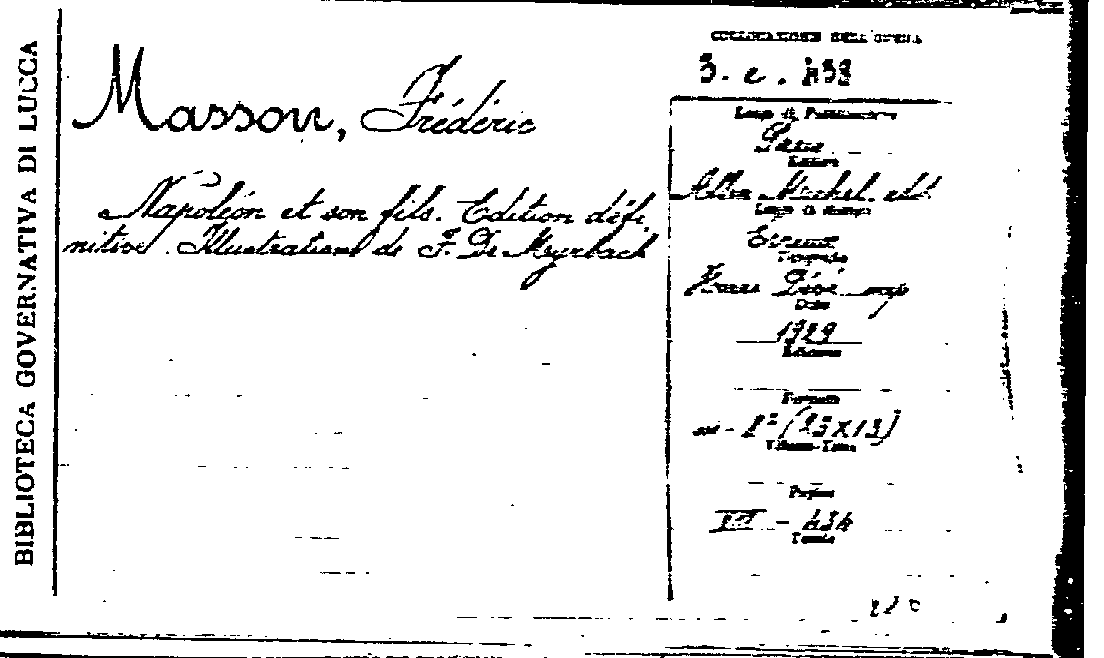 BIBLIOTECA GOVERNATIVA DI LUCCA
Masson, Frédéric
Napoléon et son fils. Edition défi
nitive. Illustrations de F. De Myrbach
COLLOCAZIONE DELL'OPERA
Luogo di Pubblicazione
Paris
Editore
Albin Michel. edit
Luogo di stampa
Evreux
Tipografo
Date
1929
Edizione
Formato
in - 8° (23X13)
Volume-Tomo
Pagine
Tavole